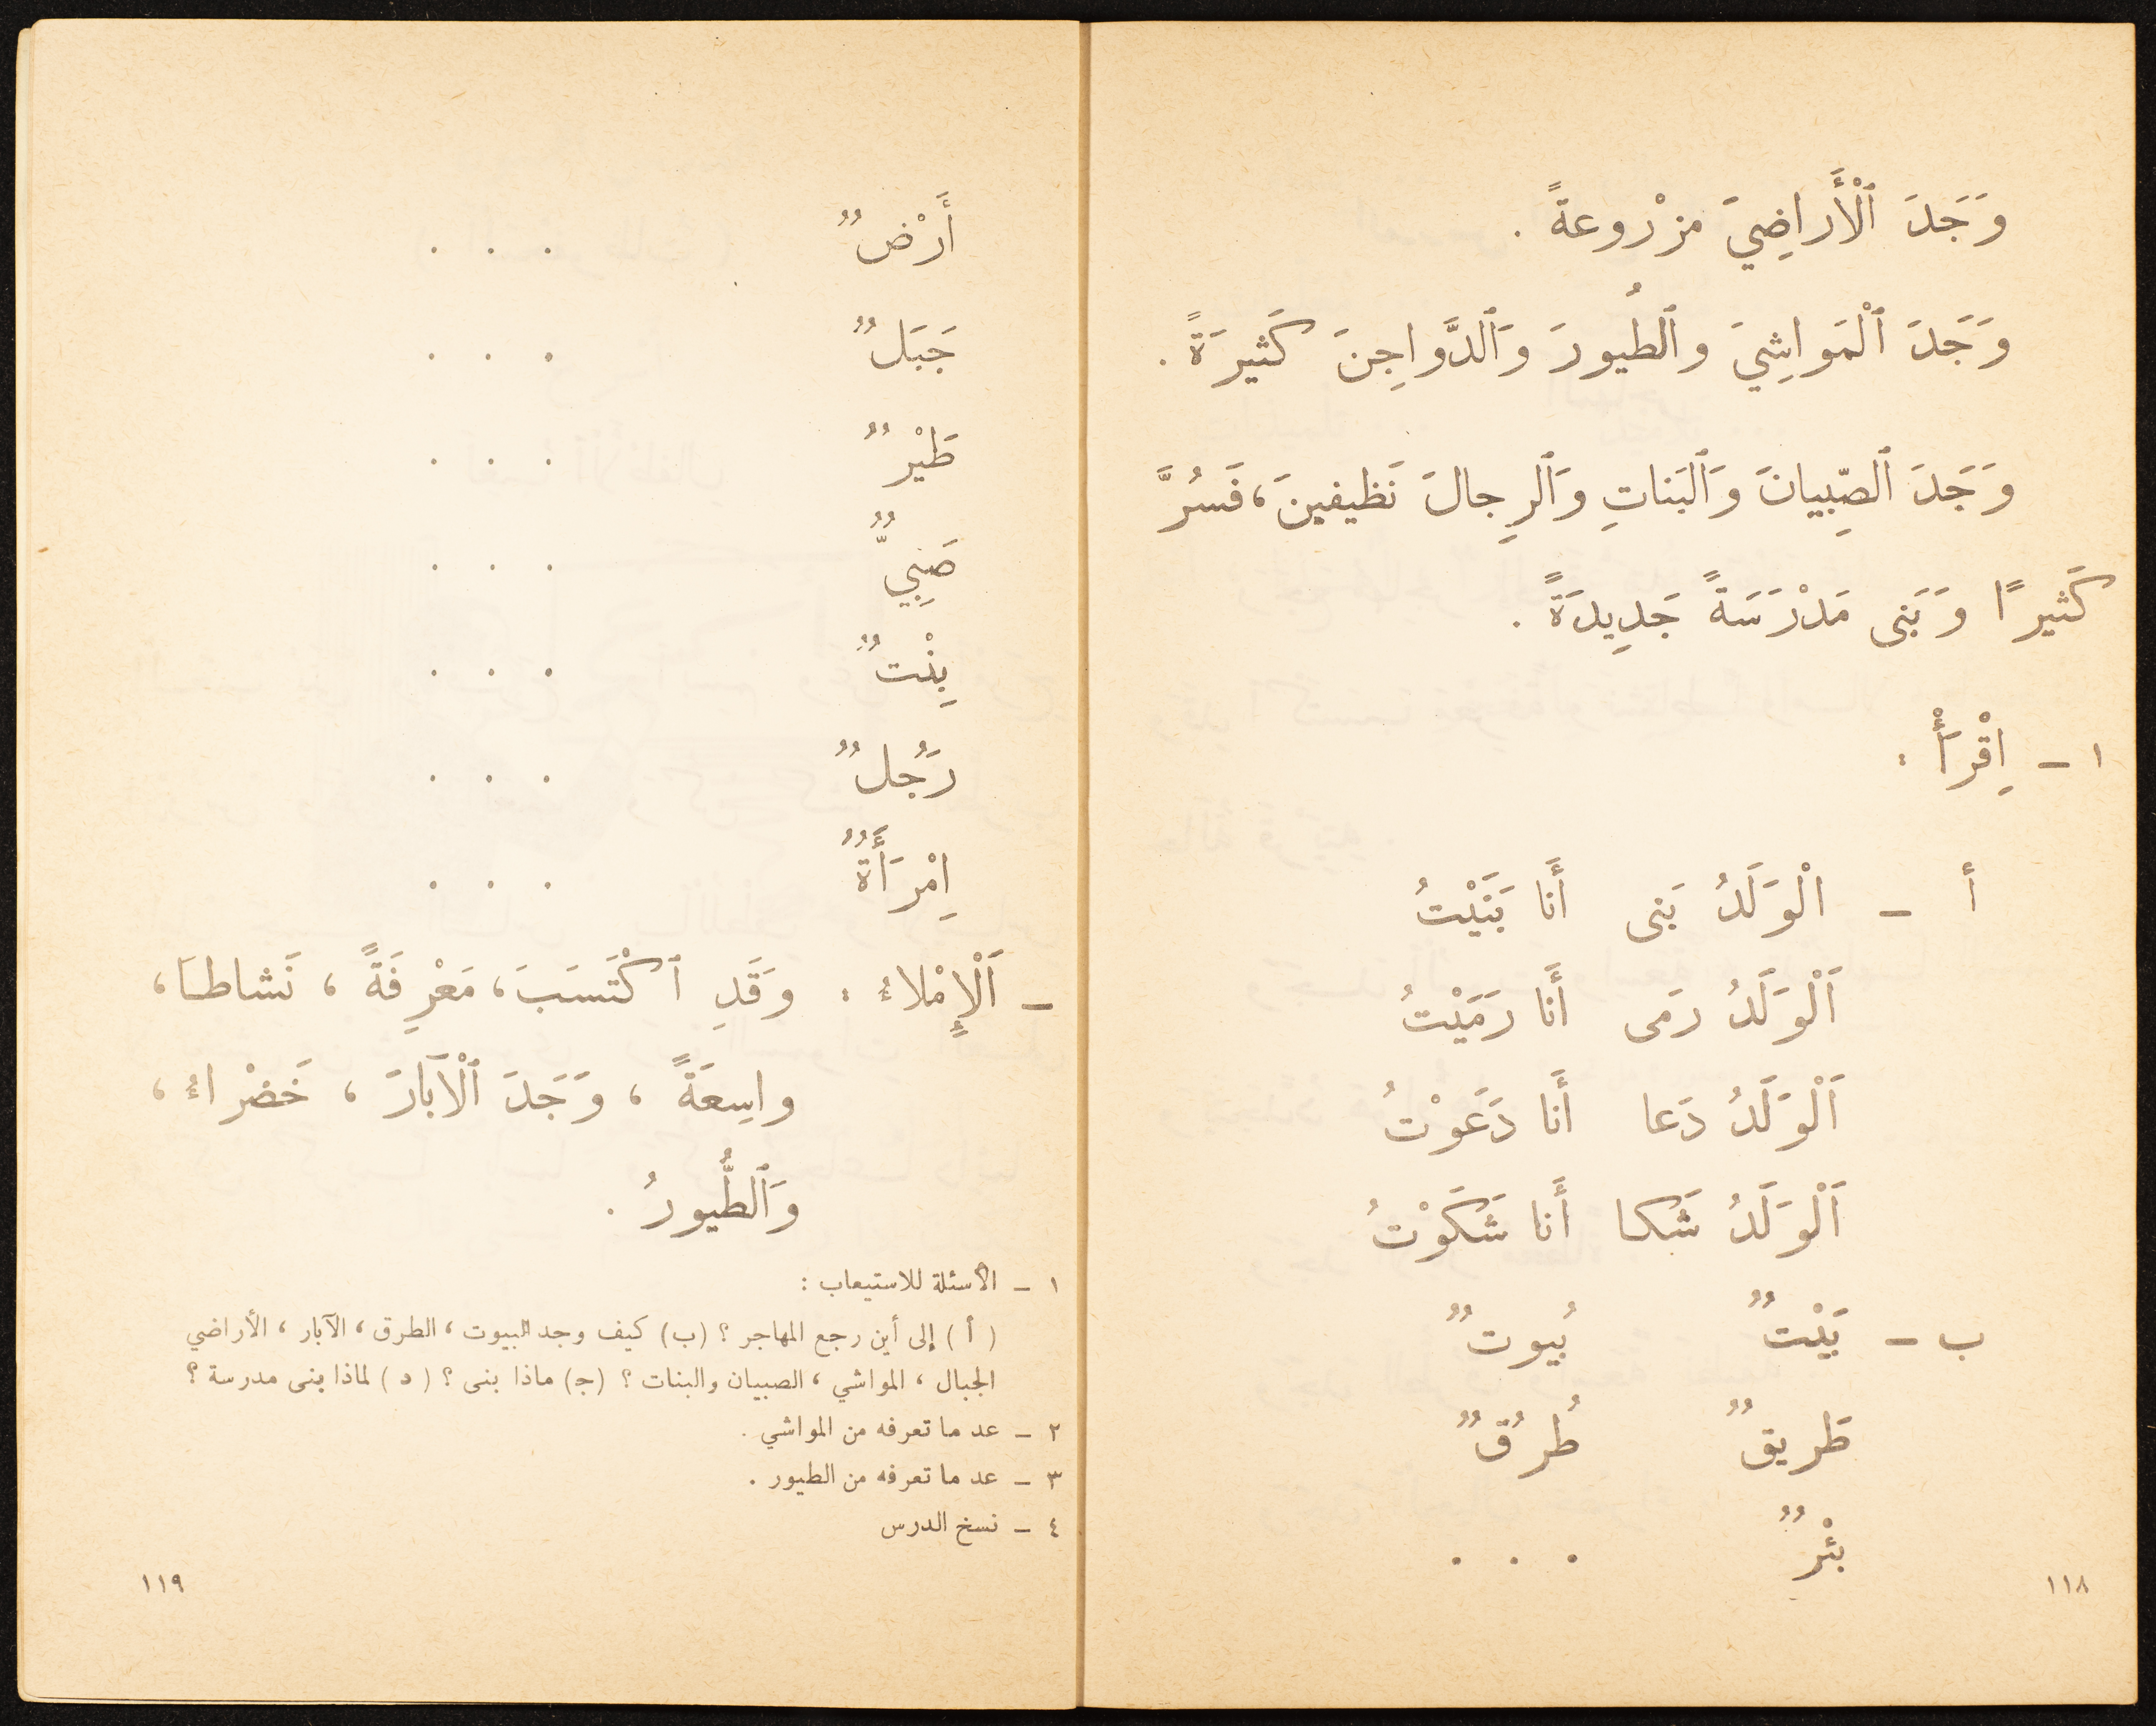 وَجَدَ ٱلْأَراضِيَ مزْروعةً .
وَجَدَ ٱلْمَواشِيَ وٱلطُيورَ وَٱلدَّواجِنَ كَثيرَةً .
وَجَدَ ٱلصِّبيانَ وَٱلبَناتِ وَٱلرِجالَ نَظيفينَ، فَسُرَّ
كَثيرًا وَبَنى مَدْرَسَةً جَديدَةً .
١ - اِقْرَأْ :
أ - الْوَلَدُ بَنى أَنا بَنَيْتُ
اَلْوَلَدُ رمَى أَنا رَمَيْتُ
اَلْوَلَدُ دَعا أَنا دَعَوْتُ
اَلْوَلَدُ شَكا أَنا شَكَوْتُ
ب - بَيْتٌ بُيوتٌ
طَريقٌ طُرُقٌ
بئْرٌ . . .
١١٨
أَرْضٌ . . .
جَبَلٌ . . .
طَيْرٌ . . .
صَبِيٌّ . . .
بِنْتٌ . . .
رَجُلٌ . . .
اِمْرَأَةٌ . . .
- اَلْإِمْلاءُ : وَقَدِ ٱكْتَسَبَ، مَعْرِفَةً ، نَشاطاً،
واسِعَةً ، وَجَدَ ٱلْآبَارَ ، خَضْراءُ ،
وَٱلطُّيورُ .
١ - الأسئلة للاستيعاب :
( أ ) إلى أين رجع المهاجر ؟ (ب) كيف وجد البيوت ، الطرق ، الآبار ، الأراضي
الجبال ، المواشي ، الصبيان والبنات ؟ (ج) ماذا بنى ؟ ( د ) لماذا بنى مدرسة ؟
٢ - عد ما تعرفه من المواشي .
٣ - عد ما تعرفه من الطيور .
٤ - نسخ الدرس
١١٩